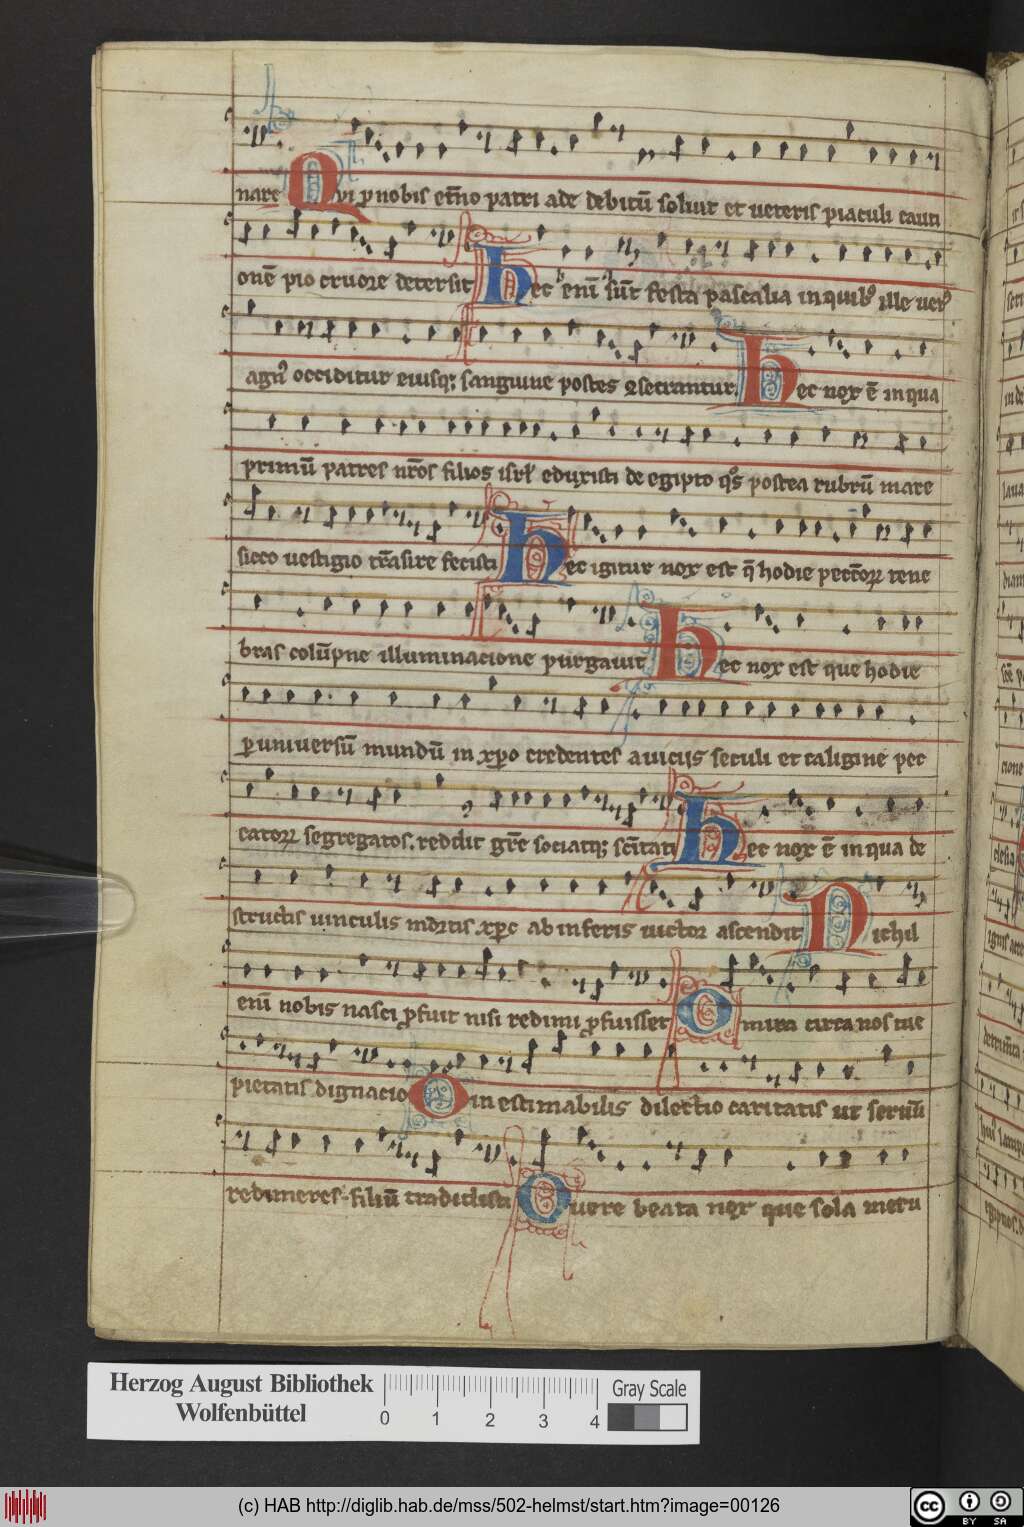 nare Qvi ꝓ nobis et̄no patri ade debitū soluit et ueteris piaculi cauti
onē pio cruore detersit hec enī sūt festa pascalia in quibꝰ ille uerꝰ
agnꝰ occiditur eiusqꝫ sanguine postes ꝯsecrantur. hec nox ē in qua
primū patres nr̄os filios isrl̄ eduxisti de egipto qͦs postea rubrū mare
sicco uestigio trāsire fecisti hec igitur nox est q̄ hodie peccōꝝ tene
bras colūpne illuminacione purgauit hec nox est que hodie
ꝑ uniuersū mundū in xp̄o credentes a uicijs seculi et caligine pec
catoꝝ segregatos. reddit gr̄e sociatqꝫ sc̄itati hec nox ē in qua de
structis uinculis mortis xp̄c ab inferis uictor ascendit Nichil
enī nobis nasci ꝓfuit nisi redimi ꝓfuisset O mira circa nos tue
pietatis dignacio O inestimabilis dilectio caritatis ut seruū
redimeres. filiū tradidisti O uere beata nox que sola meru
Herzog August Bibliothek
Wolfenbüttel
0 1 2 3 4
Gray Scale
(c) HAB http://diglib.hab.de/mss/502-helmst/start.htm?image=00126
cc BY SA